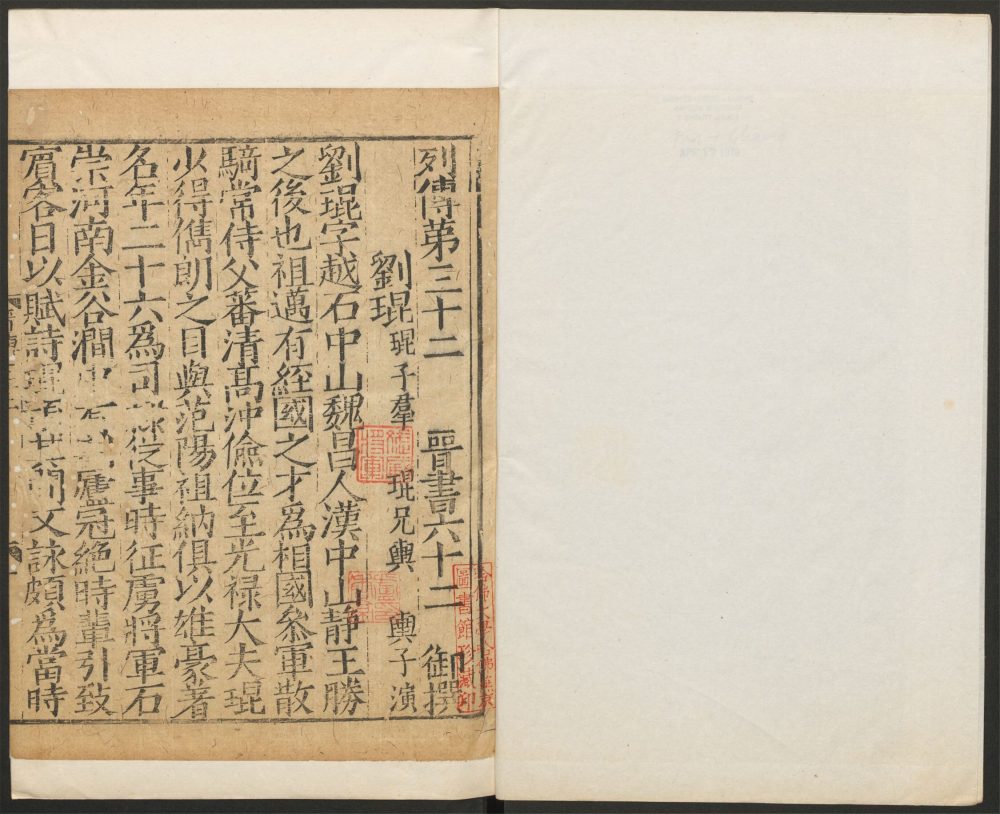 列傳第三十二 晉書六十二 御撰
劉琨 琨子羣 琨兄輿 輿子演
劉琨字越石中山魏昌人漢中山靜王勝
之後也祖邁有經國之才爲相國叅軍散
騎常侍父蕃清髙沖儉位至光禄大夫琨
少得儁朗之目與范陽祖納俱以雄豪著
名年二十六爲司隷從事時征虜將軍石
崇河南金谷澗中有廬冠絶時輩引致
賔客日以賦詩琨其間文詠頗爲當時
圖書館珍藏印